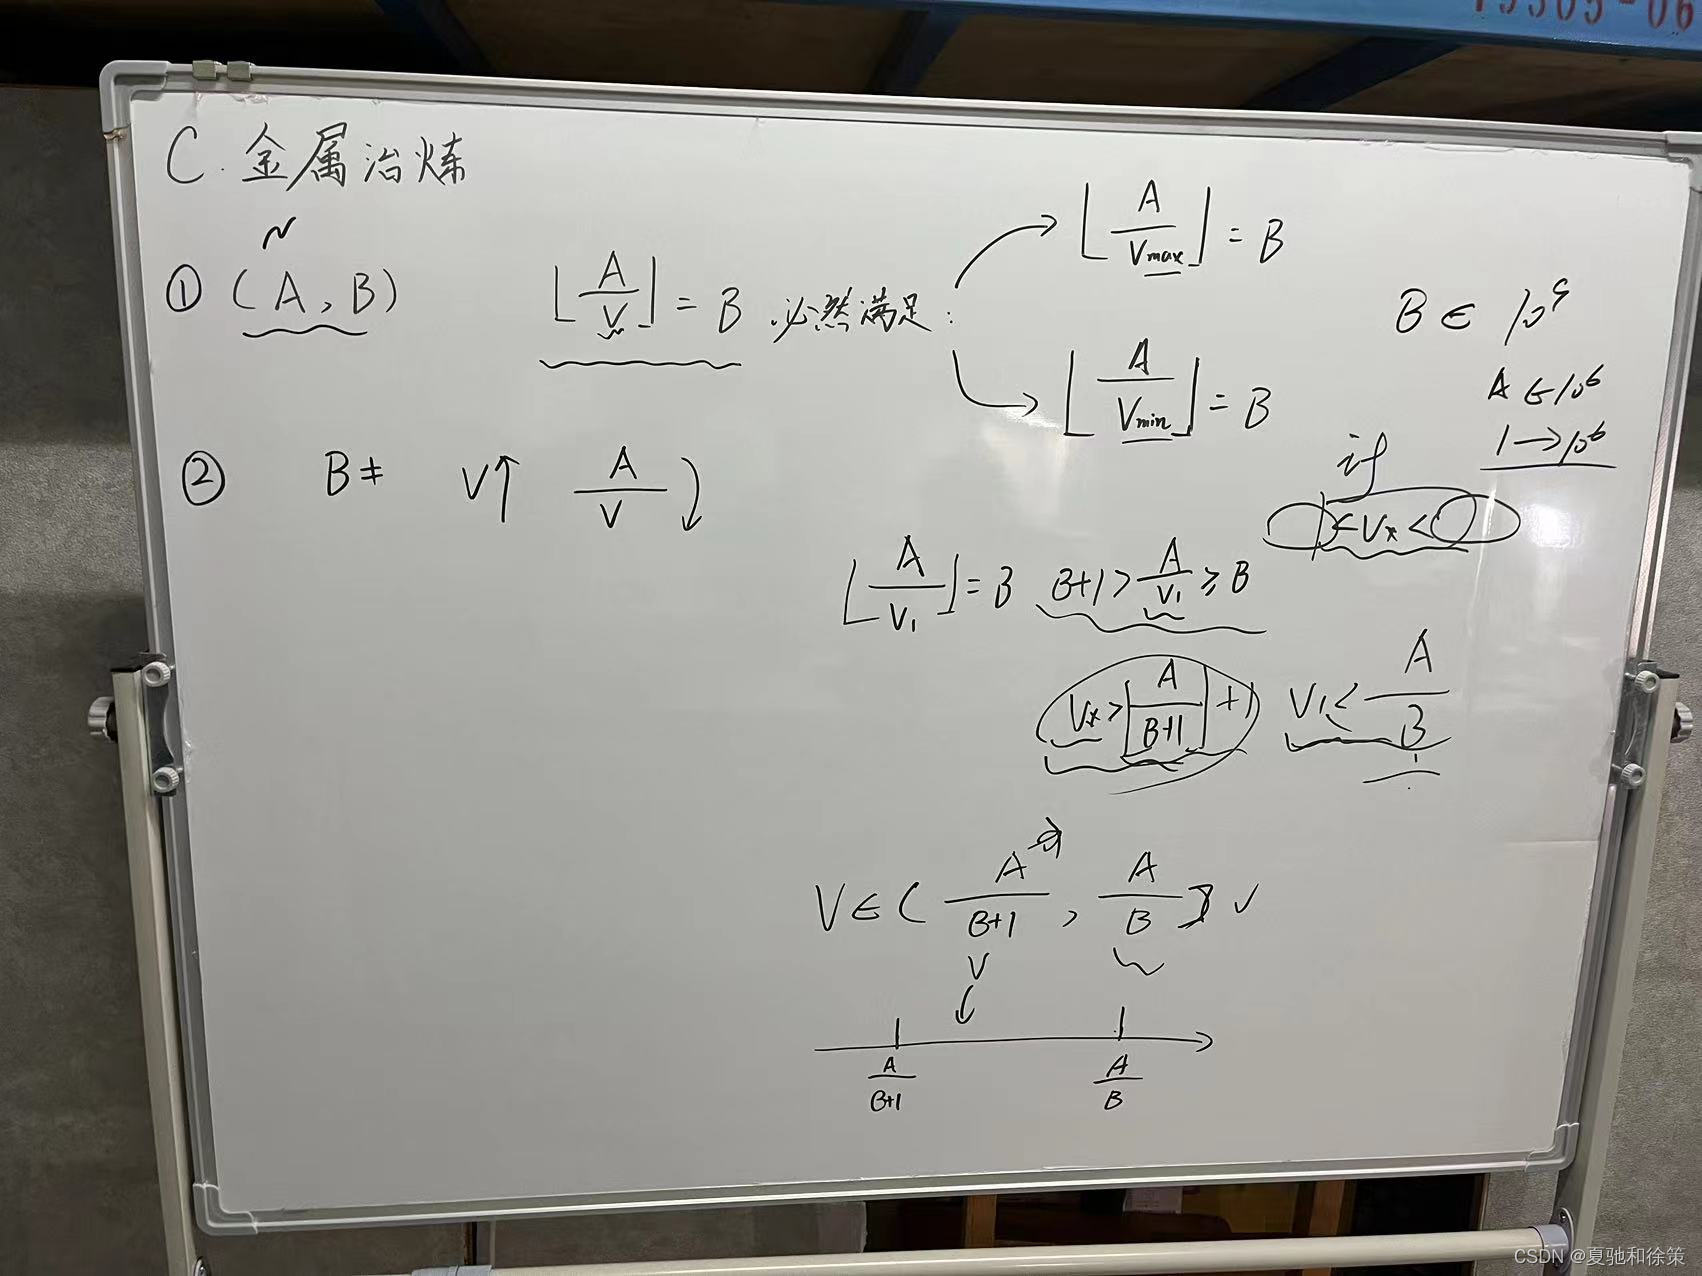 C.金属冶炼
① (A, B) ⌊A/V⌋ = B 必然满足:
⌊A/Vmax⌋ = B
⌊A/Vmin⌋ = B
B ∈ 10⁹
A ∈ 10⁶
1 → 10⁶
② B≠ V↑ A/V
<Vx<
⌊A/V₁⌋ = B B+1 > A/V₁ ≥ B
Vx > ⌊A/B+1⌋ + 1 V₁ < A/B
V ∈ ( A/B+1 , A/B ] ✓
V
A/B+1 A/B
CSDN @夏驰和徐策